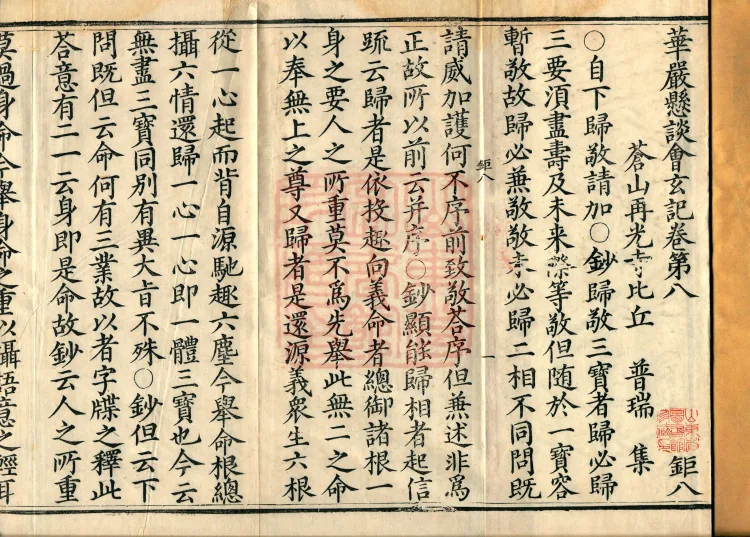 華嚴懸談會玄記卷第八 鉅八
蒼山再光寺比丘 普瑞 集
○自下歸敬請加○鈔歸敬三寶者歸必歸
三要須盡壽及未來際等敬但随於一寶容
暫敬故歸必兼敬敬未必歸二相不同問既
請威加護何不序前致敬荅序但兼述非爲
鉅八 一
正故所以前云并序○鈔顯能歸相者起信
䟽云歸者是依投趣向義命者總御諸根一
身之要人之所重莫不爲先舉此無二之命
以奉無上之尊又歸者是還源義衆生六根
從一心起而背自源馳趣六塵今舉命根總
攝六情還歸一心一心即一體三寶也今云
無盡三寶同别有異大旨不殊○鈔但云下
問既但云命何有三業故以者字牒之釋此
荅意有二一云身即是命故鈔云人之所重
莫過身命今舉身命之重以攝語意之輕耳